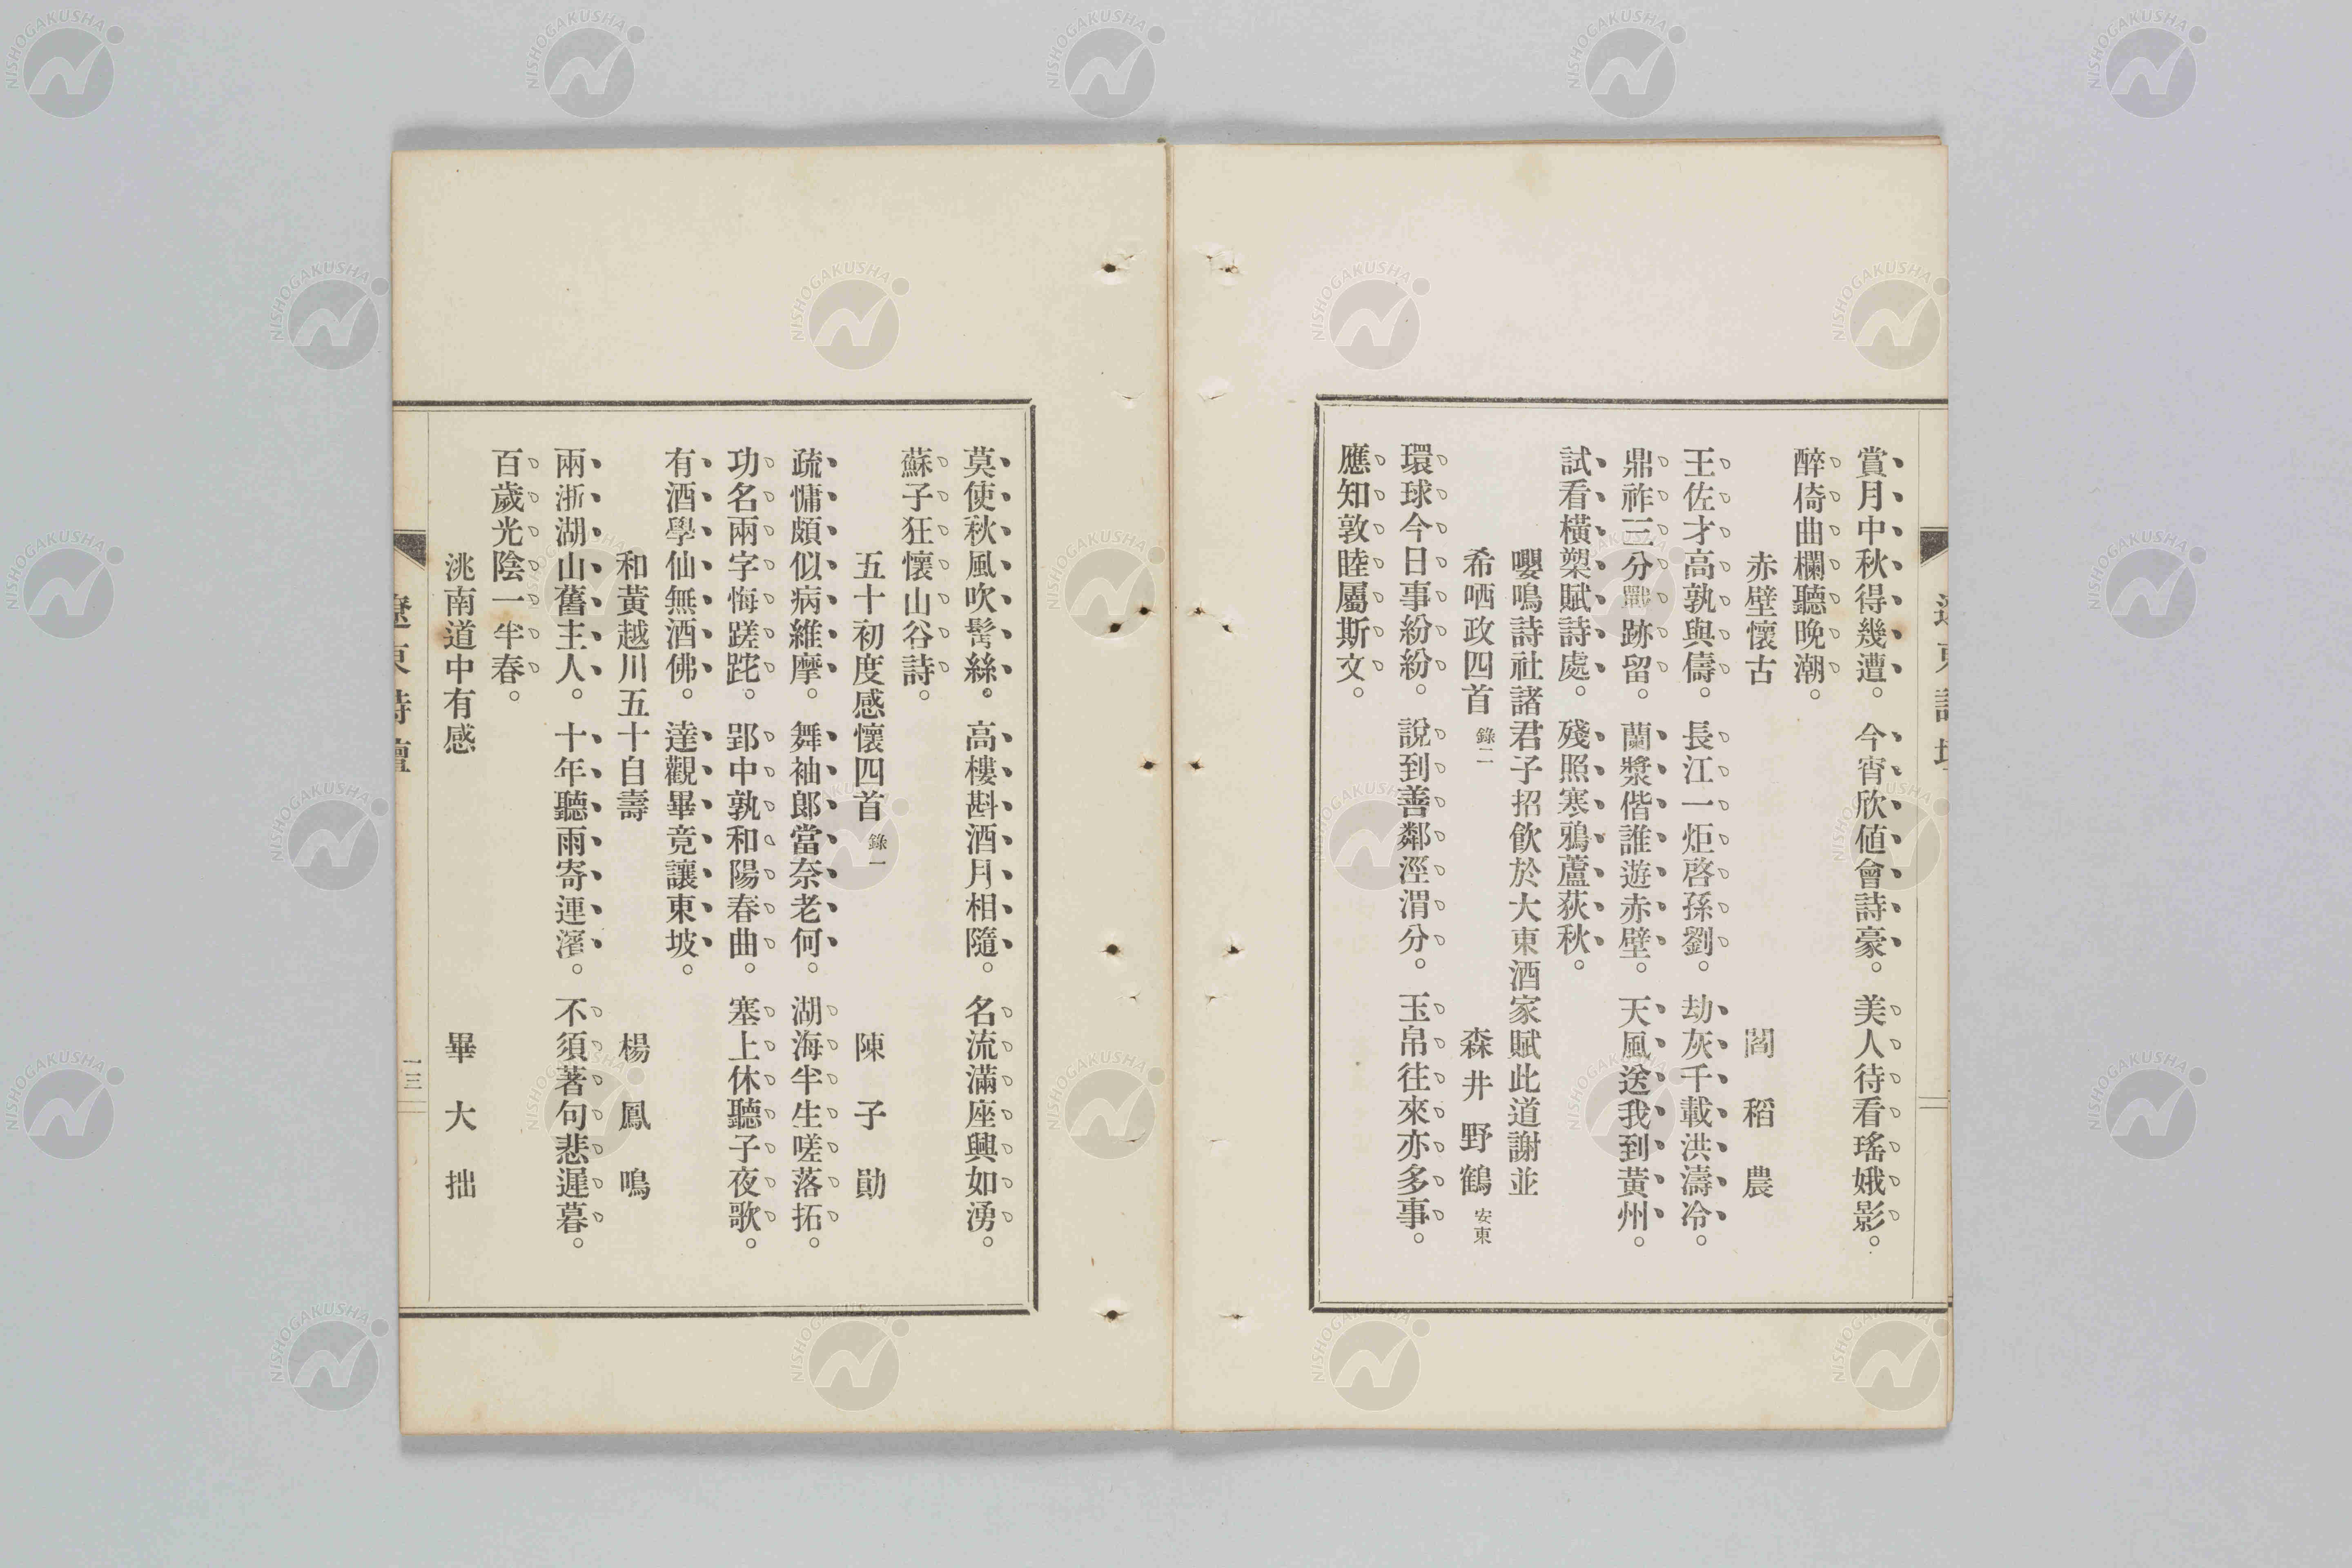 賞月中秋得幾遭。今宵欣値會詩豪。美人待看瑤娥影。
醉倚曲欄聽晚潮。
赤壁懷古　閻稻農
王佐才高孰與儔。長江一炬啓孫劉。劫灰千載洪濤冷。
鼎祚三分戰跡留。蘭槳偕誰遊赤壁。天風送我到黃州。
試看橫槊賦詩處。殘照寒鴉蘆荻秋。
嚶鳴詩社諸君子招飮於大東酒家賦此道謝並
希哂政四首 錄二　森井野鶴 安東
環球今日事紛紛。說到善鄰涇渭分。玉帛往來亦多事。
應知敦睦屬斯文。
莫使秋風吹鬢絲。高樓斟酒月相隨。名流滿座興如湧。
蘇子狂懷山谷詩。
五十初度感懷四首 錄一　陳子勛
疏慵頗似病維摩。舞袖郞當奈老何。湖海半生嗟落拓。
功名兩字悔蹉跎。郢中孰和陽春曲。塞上休聽子夜歌。
有酒學仙無酒佛。達觀畢竟讓東坡。
和黃越川五十自壽　楊鳳鳴
兩浙湖山舊主人。十年聽雨寄連濱。不須著句悲遲暮。
百歲光陰一半春。
洮南道中有感　畢大拙
遼東詩壇
一三
NISHOGAKUSHA